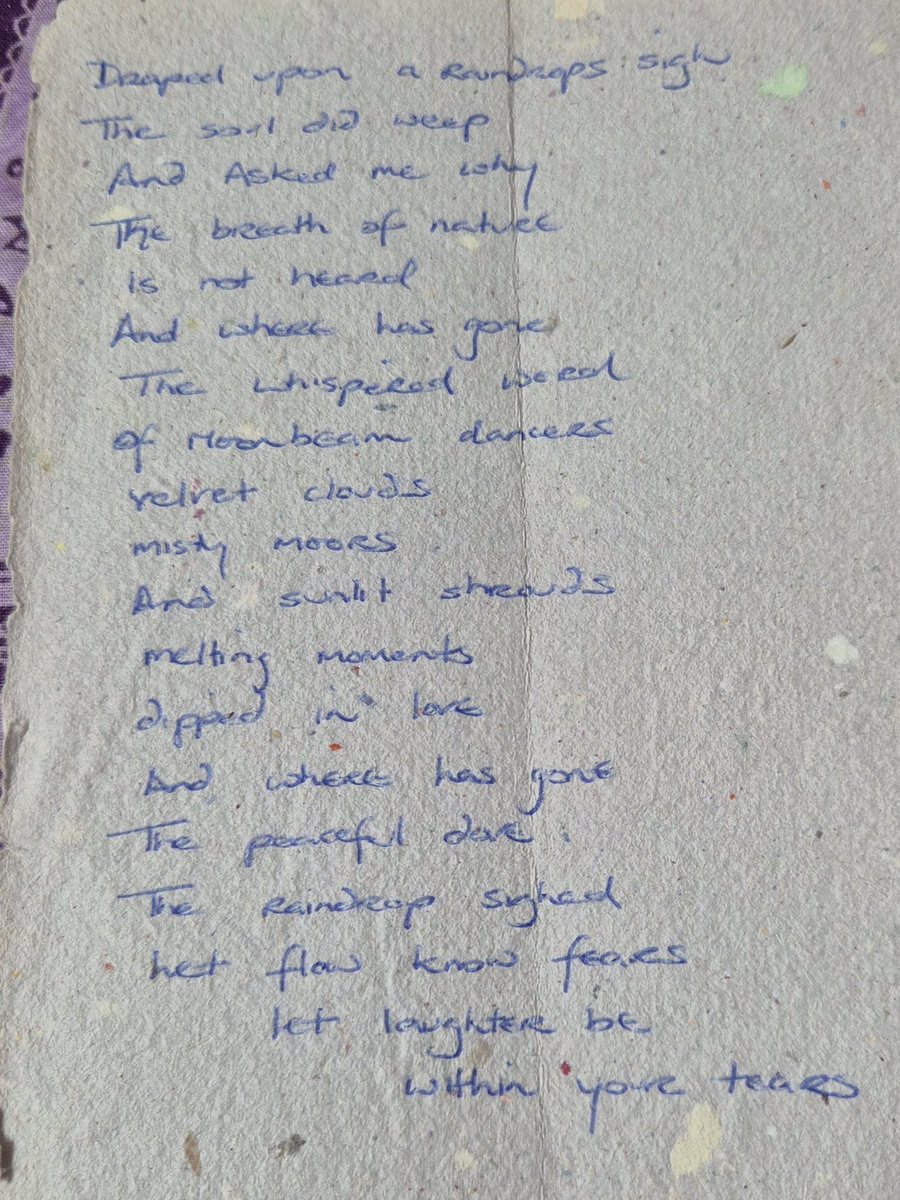 Draped upon a Raindrops sigh
The soul did weep
And Asked me why
The breath of nature
is not heard
And where has gone
The whispered word
of Moonbeam dancers
velvet clouds
misty moors
And sunlit shrouds
melting moments
dipped in love
And where has gone
The peaceful dove.
The raindrop sighed
Let flow know fears
let laughter be
within your tears